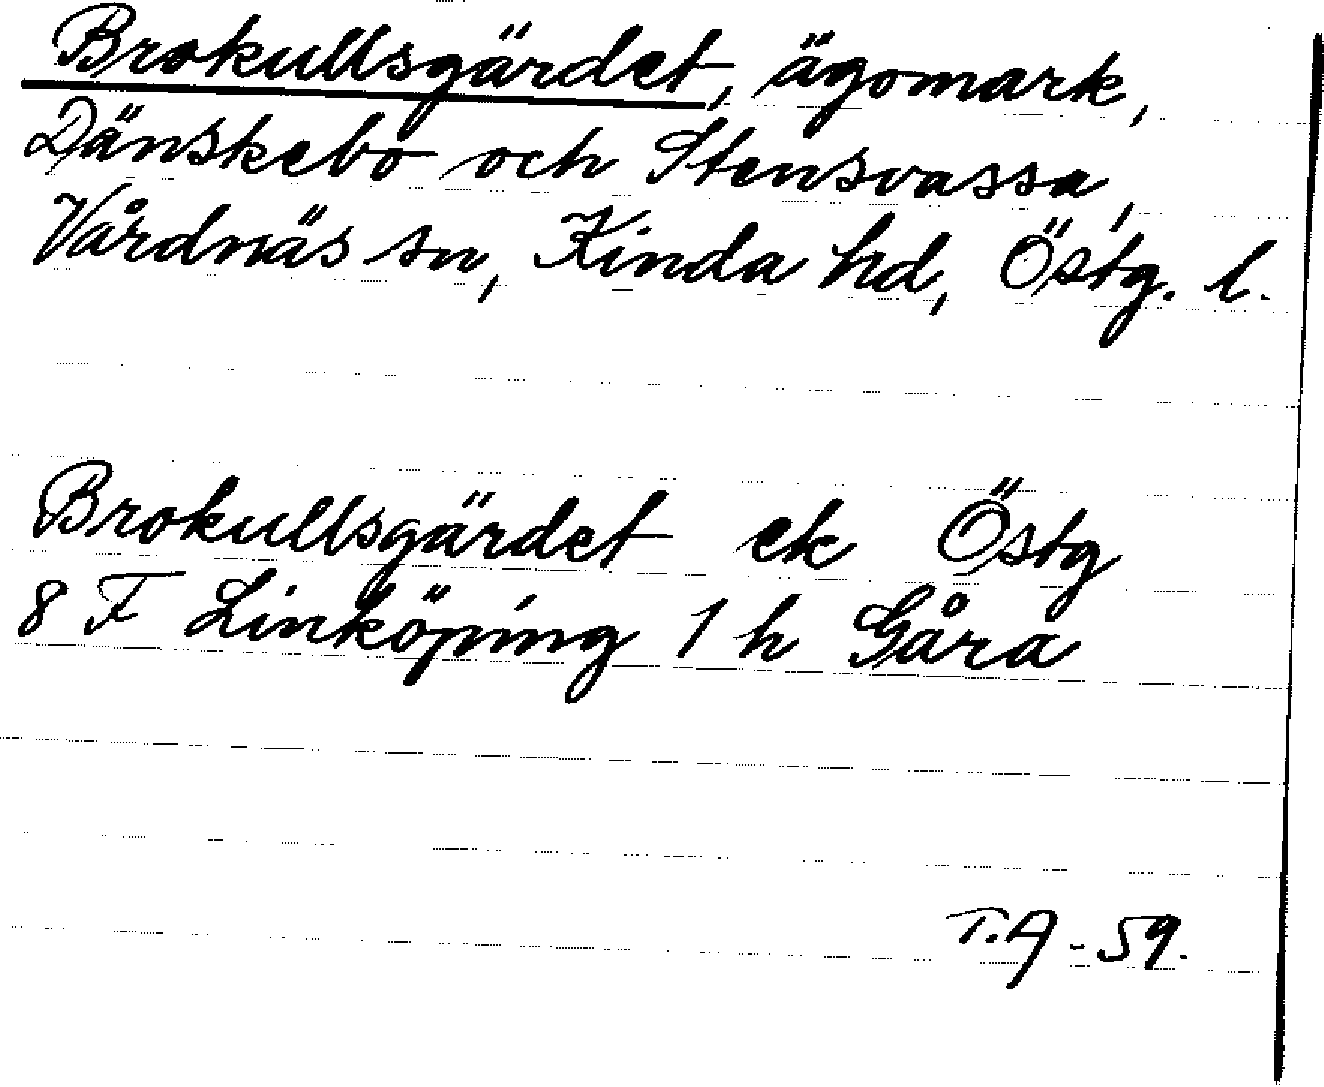 Brokullsgärdet, ägomark,
Dänskebo och Stensvassa,
Vårdnäs sn, Kinda hd, Östg. l.
Brokullsgärdet ek Östg
8 F Linköping 1 h Gåra
T.A - 59.